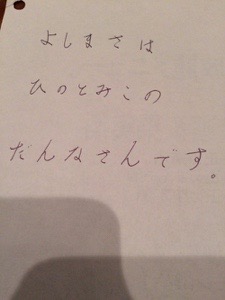 よしまさは
ひのとみこの
だんなさんです。